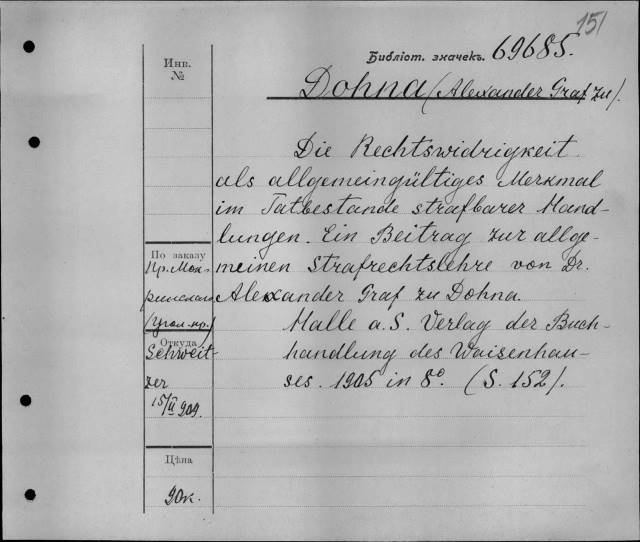 151
Библіот. значекъ. 69685.
Инв.
№
Dohna (Alexander Graf zu).
Die Rechtswidrigkeit
als allgemeingültiges Merkmal
im Tatbestande strafbarer Hand-
lungen. Ein Beitrag zur allge-
meinen Strafrechtslehre von Dr.
Alexander Graf zu Dohna.
Halle a. S. Verlag der Buch-
handlung des Waisenhau-
ses. 1905 in 8º. (S. 152).
По заказу
Пр. Мок-
ринскаго
(Угол. пр.)
Откуда
Schweit-
zer
15/II 909.
Цѣна
90к.